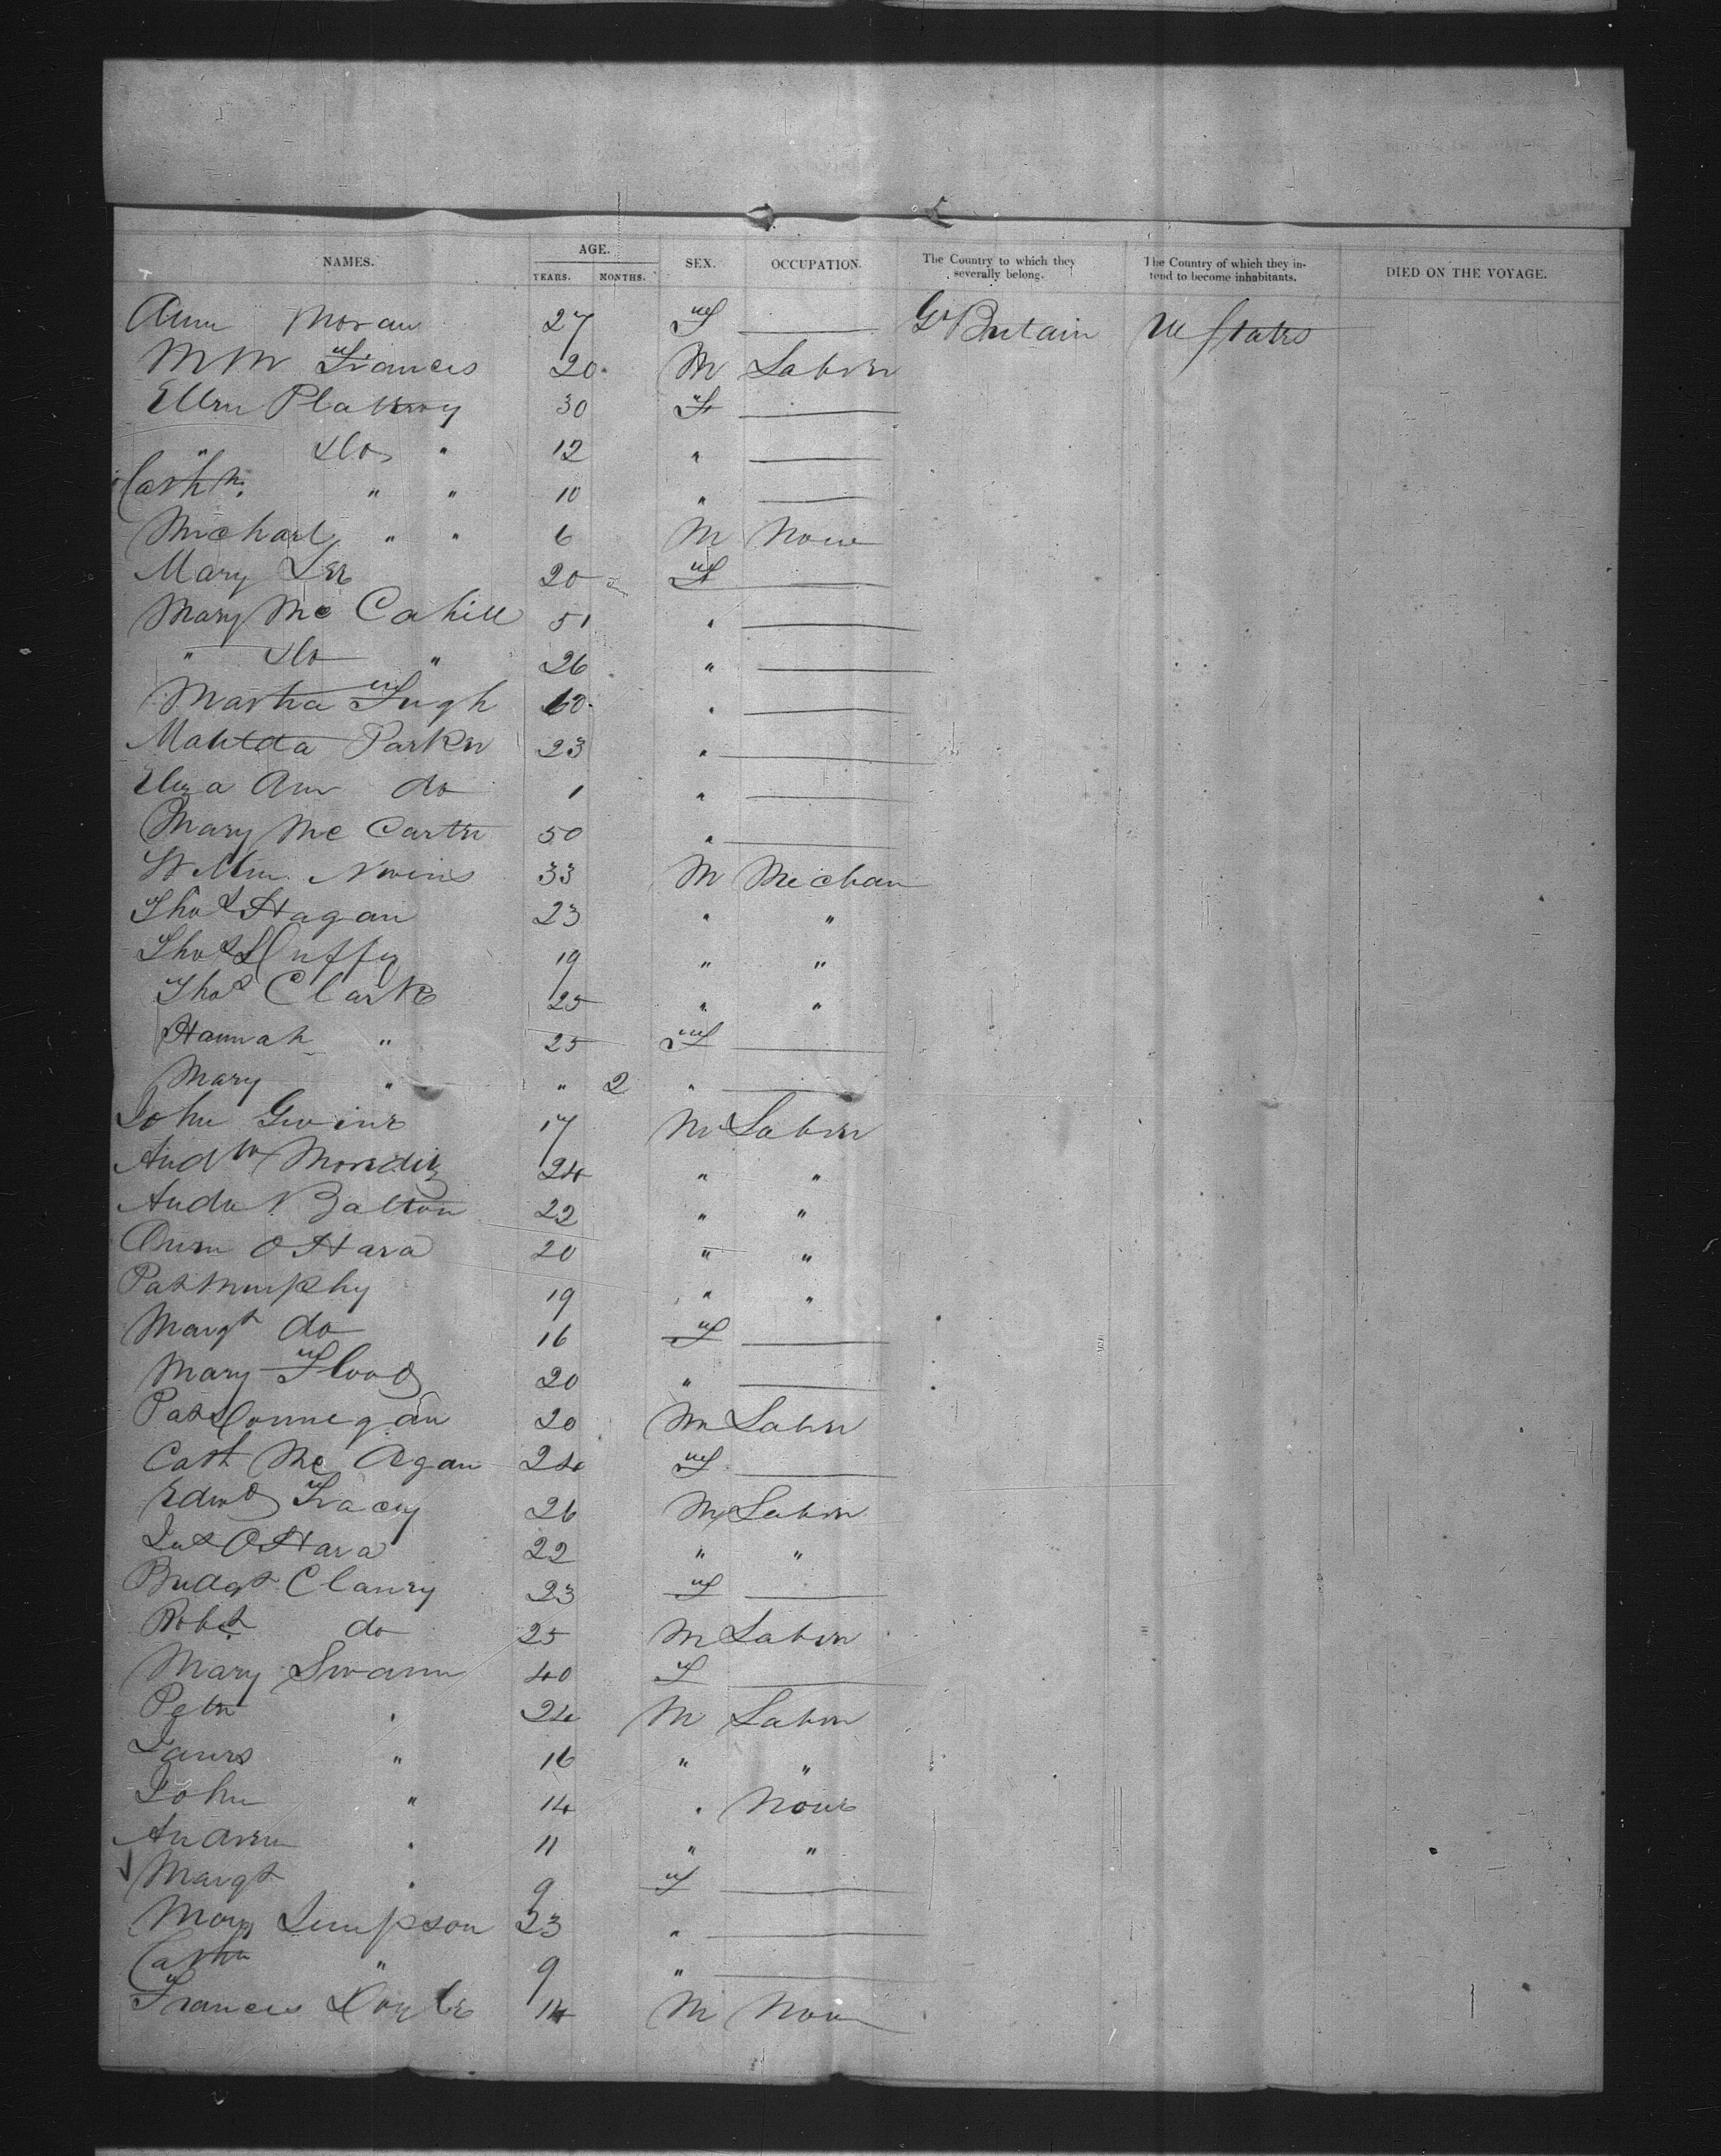 NAMES. AGE. YEARS. MONTHS. SEX. OCCUPATION. The Country to which they severally belong. The Country of which they intend to become inhabitants. DIED ON THE VOYAGE.
Ann Moran 27 F —— Gt Britain U States
Wm Francis 20 M Labrer
Ellen 30 F ——
" do " 12 " ——
Cathn " " 10 " ——
Michael " " 6 M None
Mary Lee 20 F ——
Mary Mc Cahill 51 " ——
" do " 26 " ——
Martha 60 " ——
Matilda Parker 23 " ——
Eliza Ann do 1 " ——
Mary Mc Carter 50 " ——
33 M Mechan
Thos Hagan 23 " "
Thos Duffy 19 " "
Thos Clarke 25 " "
Hannah " 25 F ——
Mary " " 2 " ——
John 17 M Labrer
Andw 24 " "
Andw Balton 22 " "
Ann O Hara 20 " "
Pat Murphy 19 " "
Margt do 16 F ——
Mary Flood 20 " ——
Pat Donnegan 20 M Labrer
Cath Mc Agan 24 F ——
Edwd Tracey 26 M Labrer
O Hara 22 " "
Bridgt Clancy 23 F ——
Robt do 25 M Labrer
Mary Swann 40 F ——
Peter " 24 M Labrer
James " 16 " "
John " 14 " None
Andrew " 11 " "
Margt " 9 F ——
Mary Simpson 23 " ——
Cathn " 9 " ——
Francis Doyle 14 M None